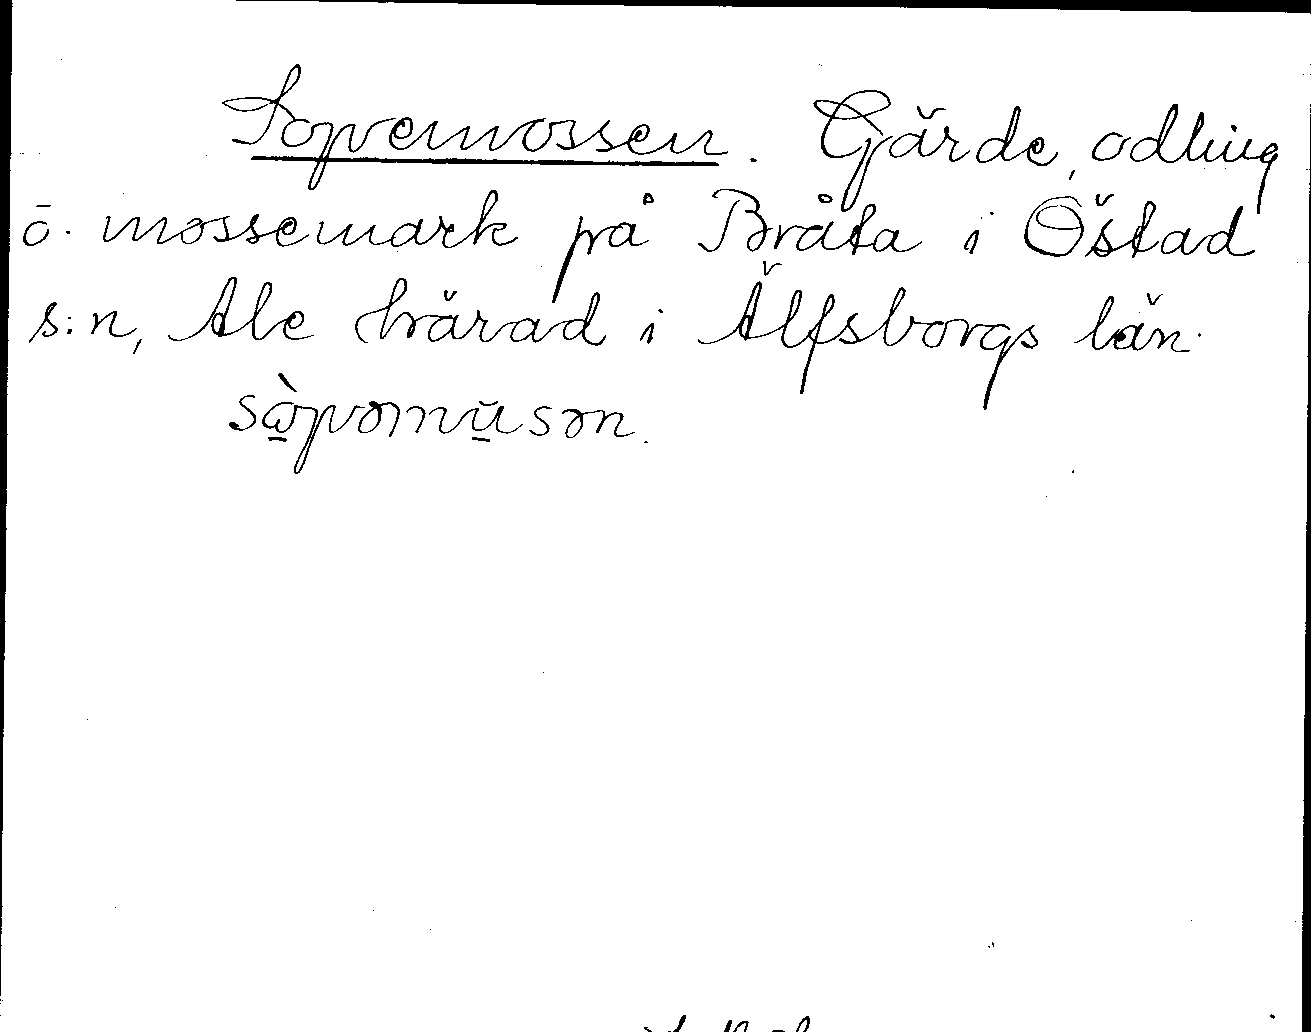 Sopvemossen. Gärde, odling
o. mossemark på Bråta i Östad
s:n, Ale härad i Älfsborgs län.